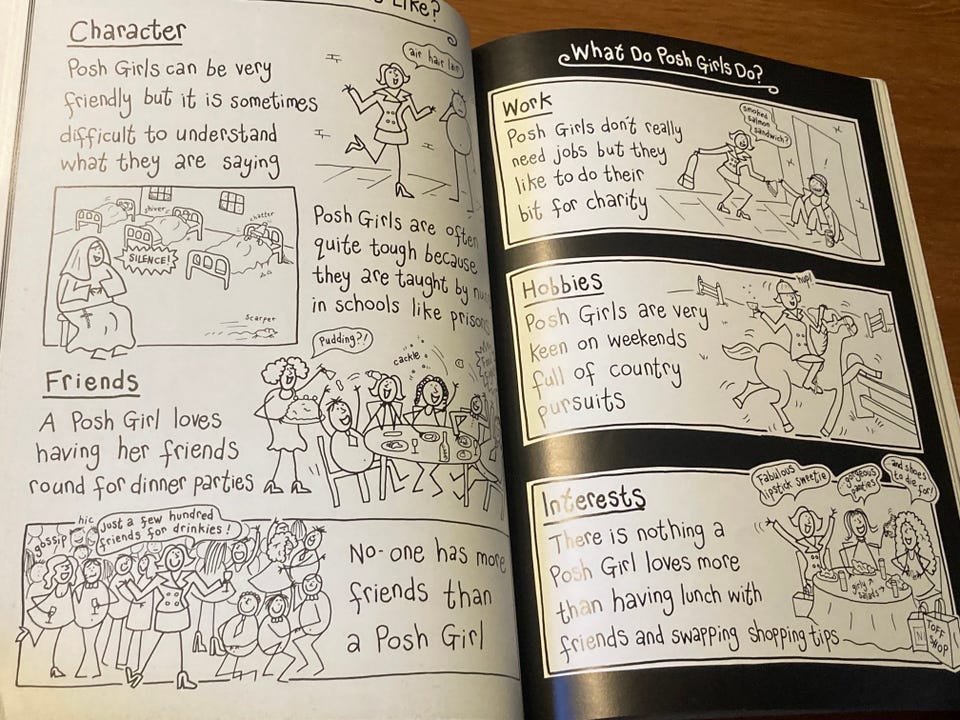 Like?
Character
Posh Girls can be very
friendly but it is sometimes
difficult to understand
what they are saying
air hair lair
shiver
chatter
SILENCE!
scarper
Posh Girls are often
quite tough because
they are taught by
in schools like prisons
Friends
A Posh Girl loves
having her friends
round for dinner parties
Pudding?!
cackle
gossip
hic
Just a few hundred
friends for drinkies!
No-one has more
friends than
a Posh Girl
What Do Posh Girls Do?
Work
Posh Girls don't really
need jobs but they
like to do their
bit for charity
smoked
salmon
sandwich?
Hobbies
Posh Girls are very
keen on weekends
full of country
pursuits
hup!
Interests
There is nothing a
Posh Girl loves more
than having lunch with
friends and swapping shopping tips
Fabulous
lipstick sweetie
gorgeous
parties
and shoes
to die for!
girly
salads
TOFF
SHOP